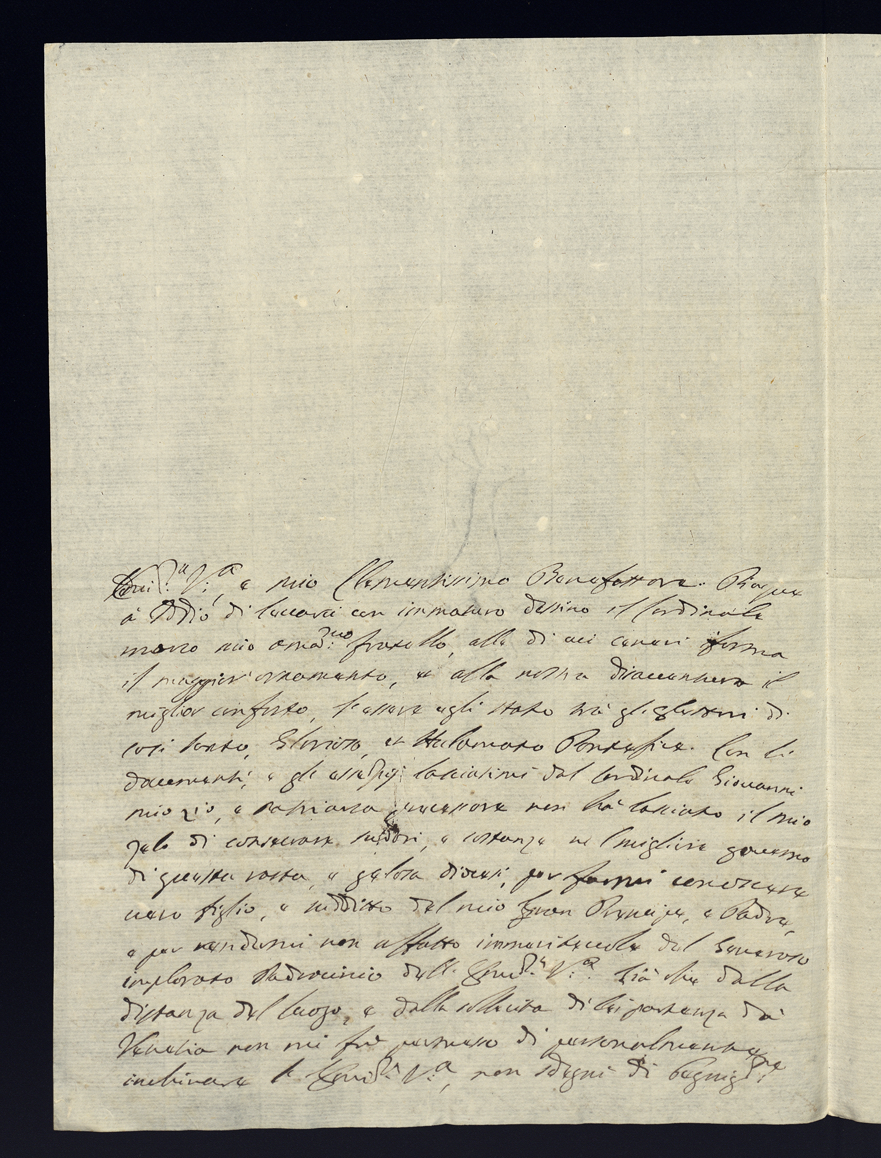 Em:za V:a, e mio Clementissimo Benefattore. Piaque
à Iddio di levarci con immaturo destino il Cardinale
marco mio ama:mo fratello, alle di cui ceneri forma
il maggior ornamento, e alla nostra discendenza il
miglior conforto, l'essere egli stato trà gli
così Santo, Glorioso, et Pontefice. Con li
documenti, e gli lasciatimi dal Cardinale Giovanni
mio zio, e Patriarca Precessore non hà lasciato il mio
zelo di consecrare sudori, e costanza nel migliore governo
di questa vasta, e gelosa diocesi, per farmi conoscere
vero figlio, e suddito del mio Gran Prencipe, e Padre,
e per rendermi non affatto immeritevole del Generoso
implorato Padrocinio dell' Em:za V:a Già che dalla
distanza del luogo, e dalla sollecita di Lei partenza da
Venetia non mi fu permesso di personalmente
inchinare l' Em:za V:a, non sdegni di